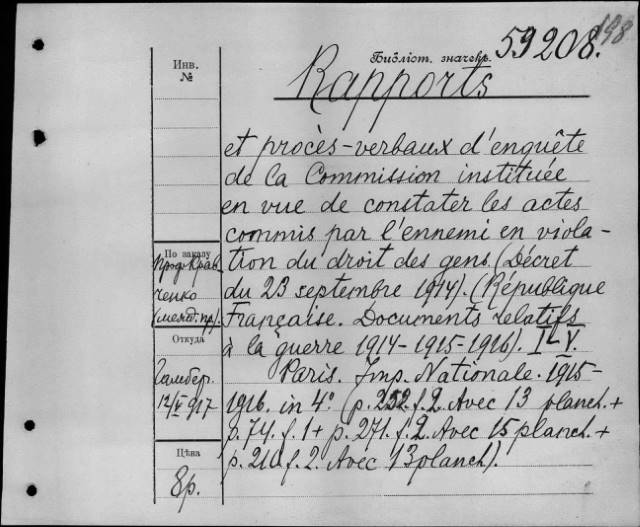 198
Библіот. значекъ. 59208.
Инв.
№
Rapports
et procès-verbaux d'enquête
de la Commission instituée
en vue de constater les actes
commis par l'ennemi en viola-
tion du droit des gens. (Décret
du 23 septembre 1914). (République
Française. Documents relatifs
à la guerre 1914-1915-1916). I-V.
Paris. Imp. Nationale. 1915-
1916. in 4° (p. 252. f. 2. Avec 13 planch. +
p. 74. f. 1 + p. 271. f. 2. Avec 15 planch. +
p. 210 f. 2. Avec 13 planch).
По заказу
Проф. Крав-
ченко
Откуда
Гамбер.
12/V 917
Цѣна
8р.